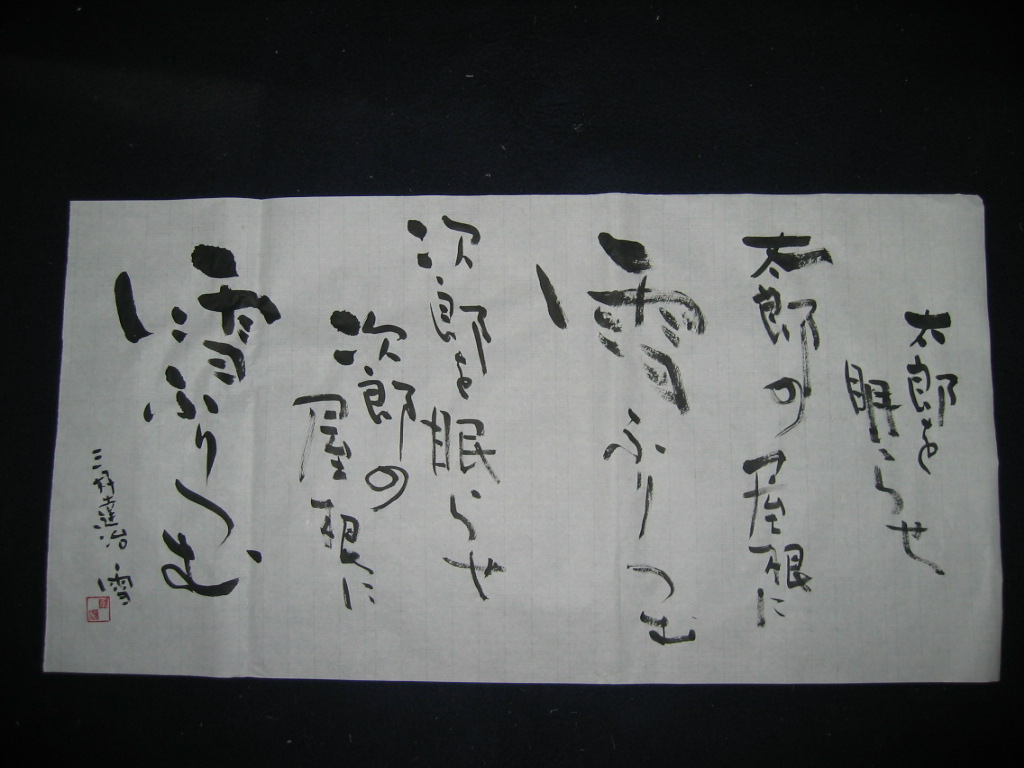 太郎を
眠らせ
太郎の屋根に
雪ふりつむ
次郎を眠らせ
次郎の
屋根に
雪ふりつむ
三好達治 雪